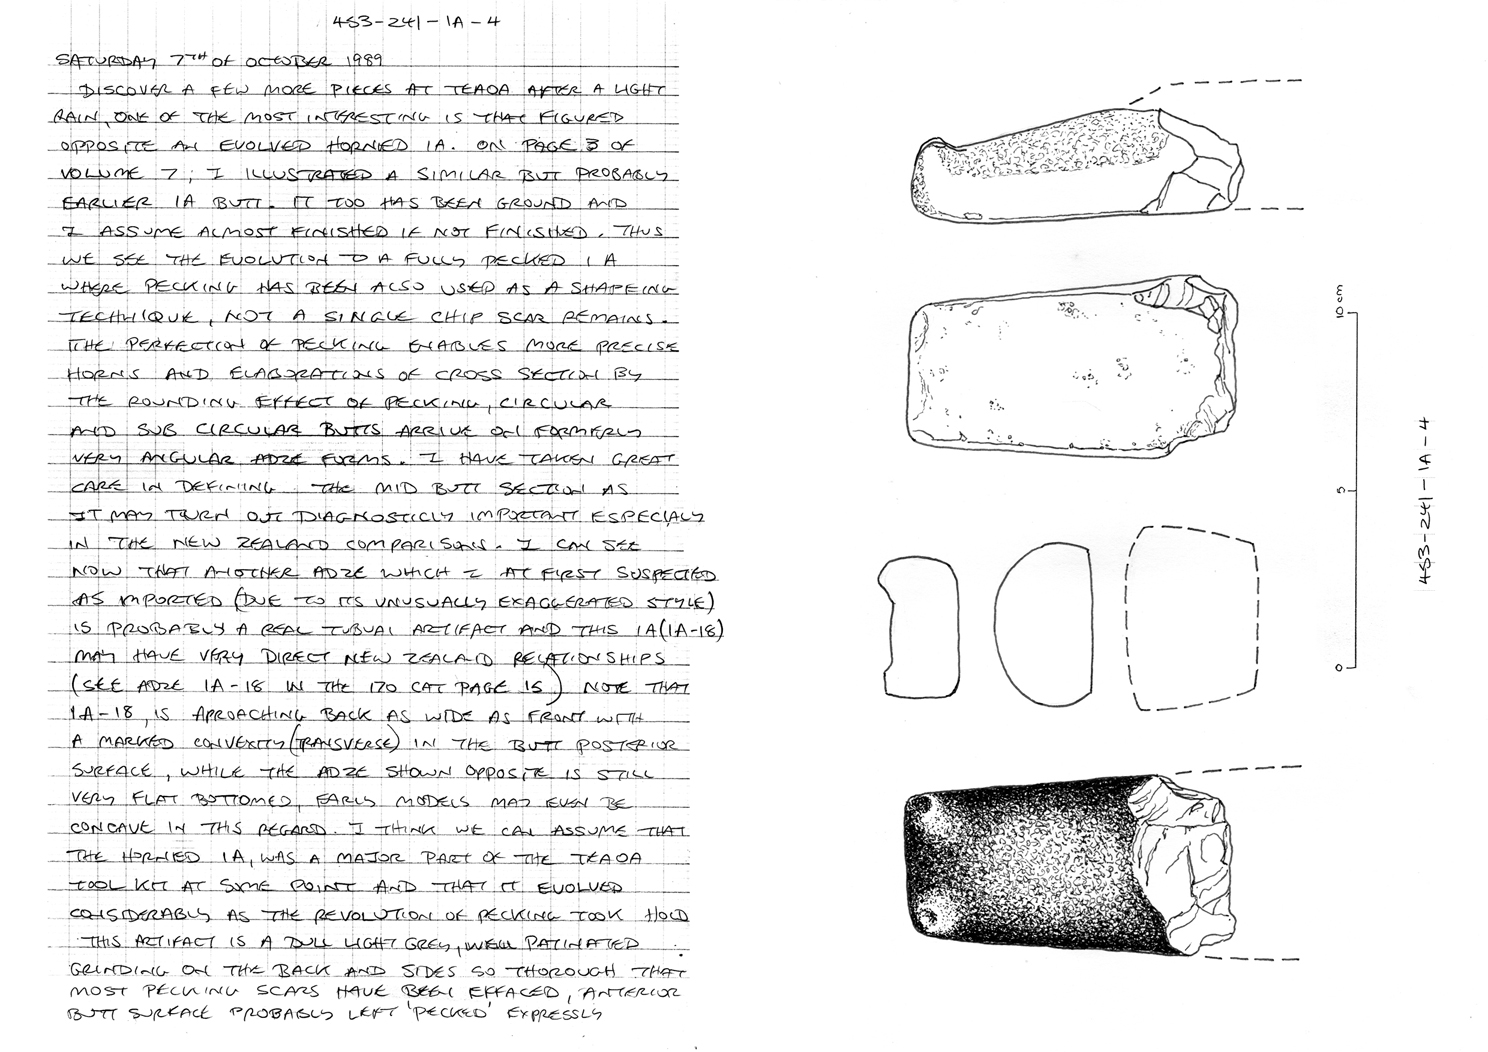 4S3-241-1A-4
SATURDAY 7TH OF OCTOBER 1989
DISCOVER A FEW MORE PIECES AT TEAOA AFTER A LIGHT
RAIN, ONE OF THE MOST INTERESTING IS THAT FIGURED
OPPOSITE AN EVOLVED HORNED 1A. ON PAGE 3 OF
VOLUME 7, I ILLUSTRATED A SIMILAR BUT PROBABLY
EARLIER 1A BUTT. IT TOO HAS BEEN GROUND AND
I ASSUME ALMOST FINISHED IF NOT FINISHED. THUS
WE SEE THE EVOLUTION TO A FULLY PECKED 1A
WHERE PECKING HAS BEEN ALSO USED AS A SHAPEING
TECHNIQUE, NOT A SINGLE CHIP SCAR REMAINS.
THE PERFECTION OF PECKING ENABLES MORE PRECISE
HORNS AND ELABORATIONS OF CROSS SECTION BY
THE ROUNDING EFFECT OF PECKING, CIRCULAR
AND SUB CIRCULAR BUTTS ARRIVE ON FORMERLY
VERY ANGULAR ADZE FORMS. I HAVE TAKEN GREAT
CARE IN DEFINING THE MID BUTT SECTION AS
IT MAY TURN OUT DIAGNOSTICLY IMPORTANT ESPECIALY
IN THE NEW ZEALAND COMPARISONS. I CAN SEE
NOW THAT ANOTHER ADZE WHICH I AT FIRST SUSPECTED
AS IMPORTED (DUE TO ITS UNUSUALLY EXAGGERATED STYLE)
IS PROBABLY A REAL TUBUAI ARTIFACT AND THIS 1A (1A-18)
MAY HAVE VERY DIRECT NEW ZEALAND RELATIONSHIPS
(SEE ADZE 1A-18 IN THE 170 CAT PAGE 15) NOTE THAT
1A-18, IS APROACHING BACK AS WIDE AS FRONT WITH
A MARKED CONVEXITY (TRANSVERSE) IN THE BUTT POSTERIOR
SURFACE, WHILE THE ADZE SHOWN OPPOSITE IS STILL
VERY FLAT BOTTOMED, EARLY MODELS MAY EVEN BE
CONCAVE IN THIS REGARD. I THINK WE CAN ASSUME THAT
THE HORNED 1A, WAS A MAJOR PART OF THE TEAOA
TOOL KIT AT SOME POINT AND THAT IT EVOLVED
CONSIDERABLY AS THE REVOLUTION OF PECKING TOOK HOLD
THIS ARTIFACT IS A DULL LIGHT GREY, WELL PATINATED
GRINDING ON THE BACK AND SIDES SO THOROUGH THAT
MOST PECKING SCARS HAVE BEEN EFFACED, ANTERIOR
BUTT SURFACE PROBABLY LEFT 'PECKED' EXPRESSLY
10 cm
5
0
4S3-241-1A-4